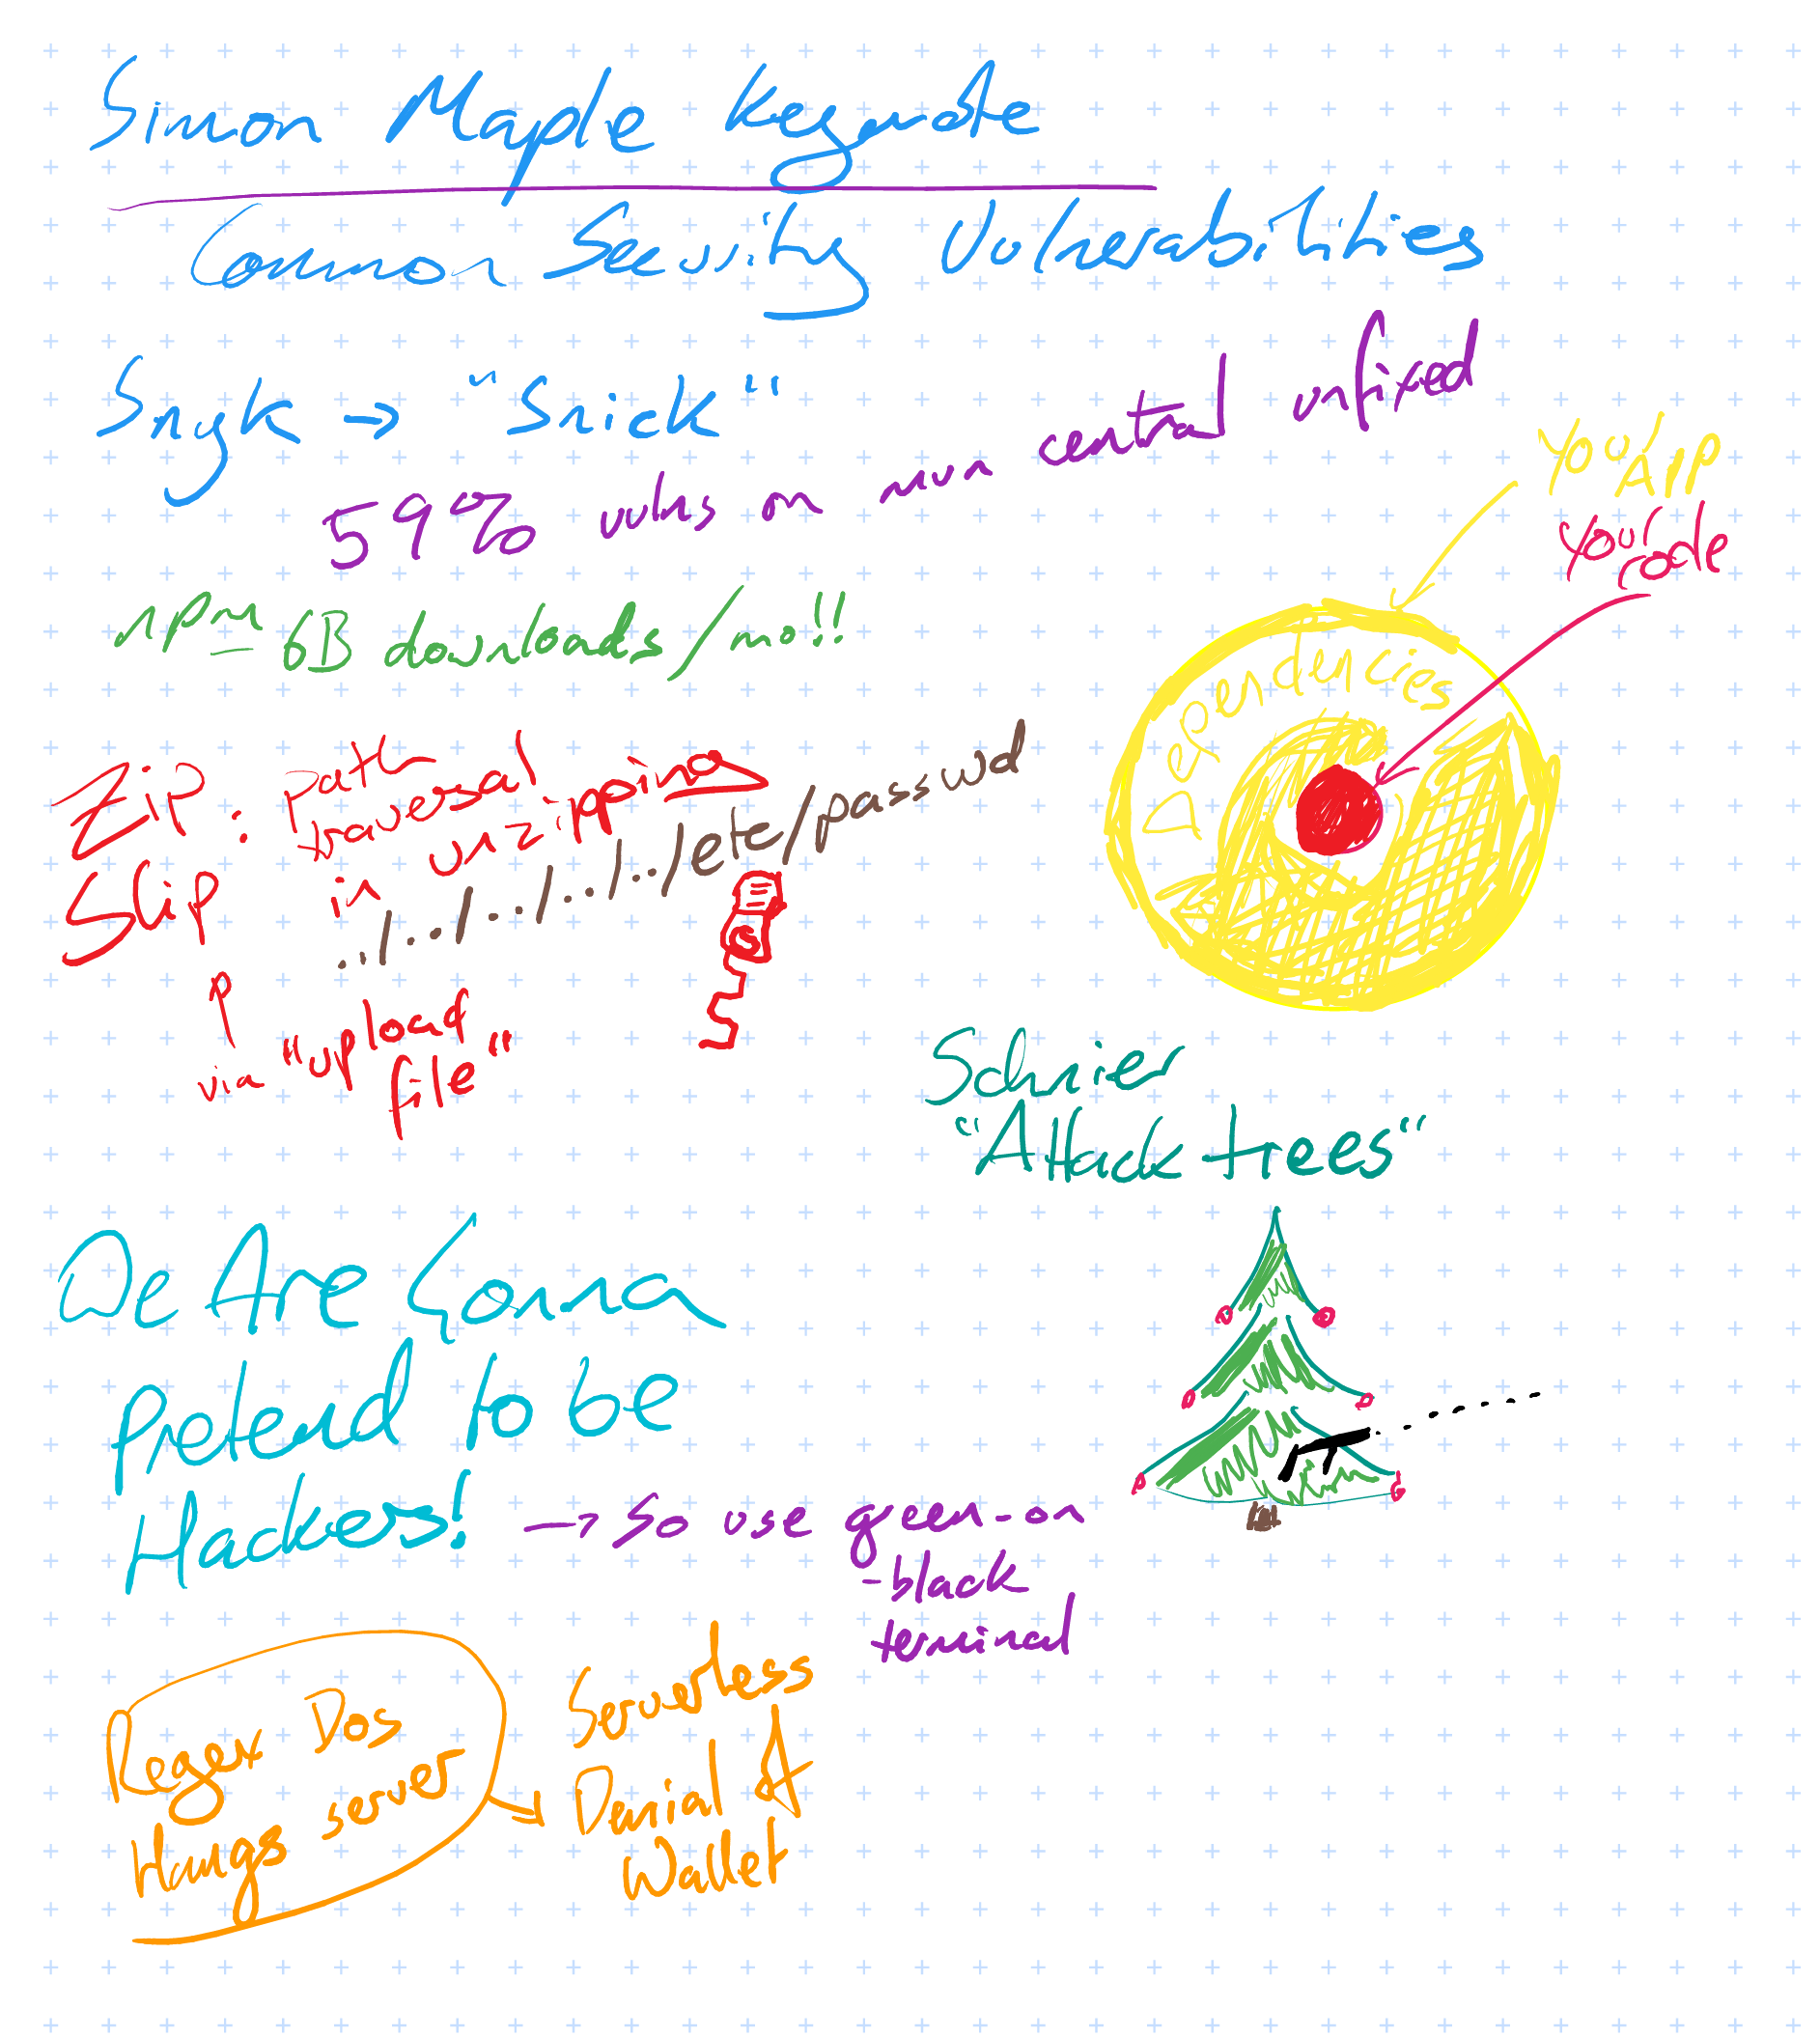 Simon Maple Keynote
Common Security Vulnerabilities
Snyk → "Snick"
59% vulns on mvn central unfixed
npm 6B downloads/mo!!
Your App
Your code
Dependencies
Zip Slip: path traversal in unzipping
../../../../../etc/passwd
via "upload file"
Schnier
"Attack trees"
We Are Gonna
pretend to be
Hackers! → So use green-on
-black
terminal
Regex Dos
Hangs server
Serverless
Denial of
Wallet